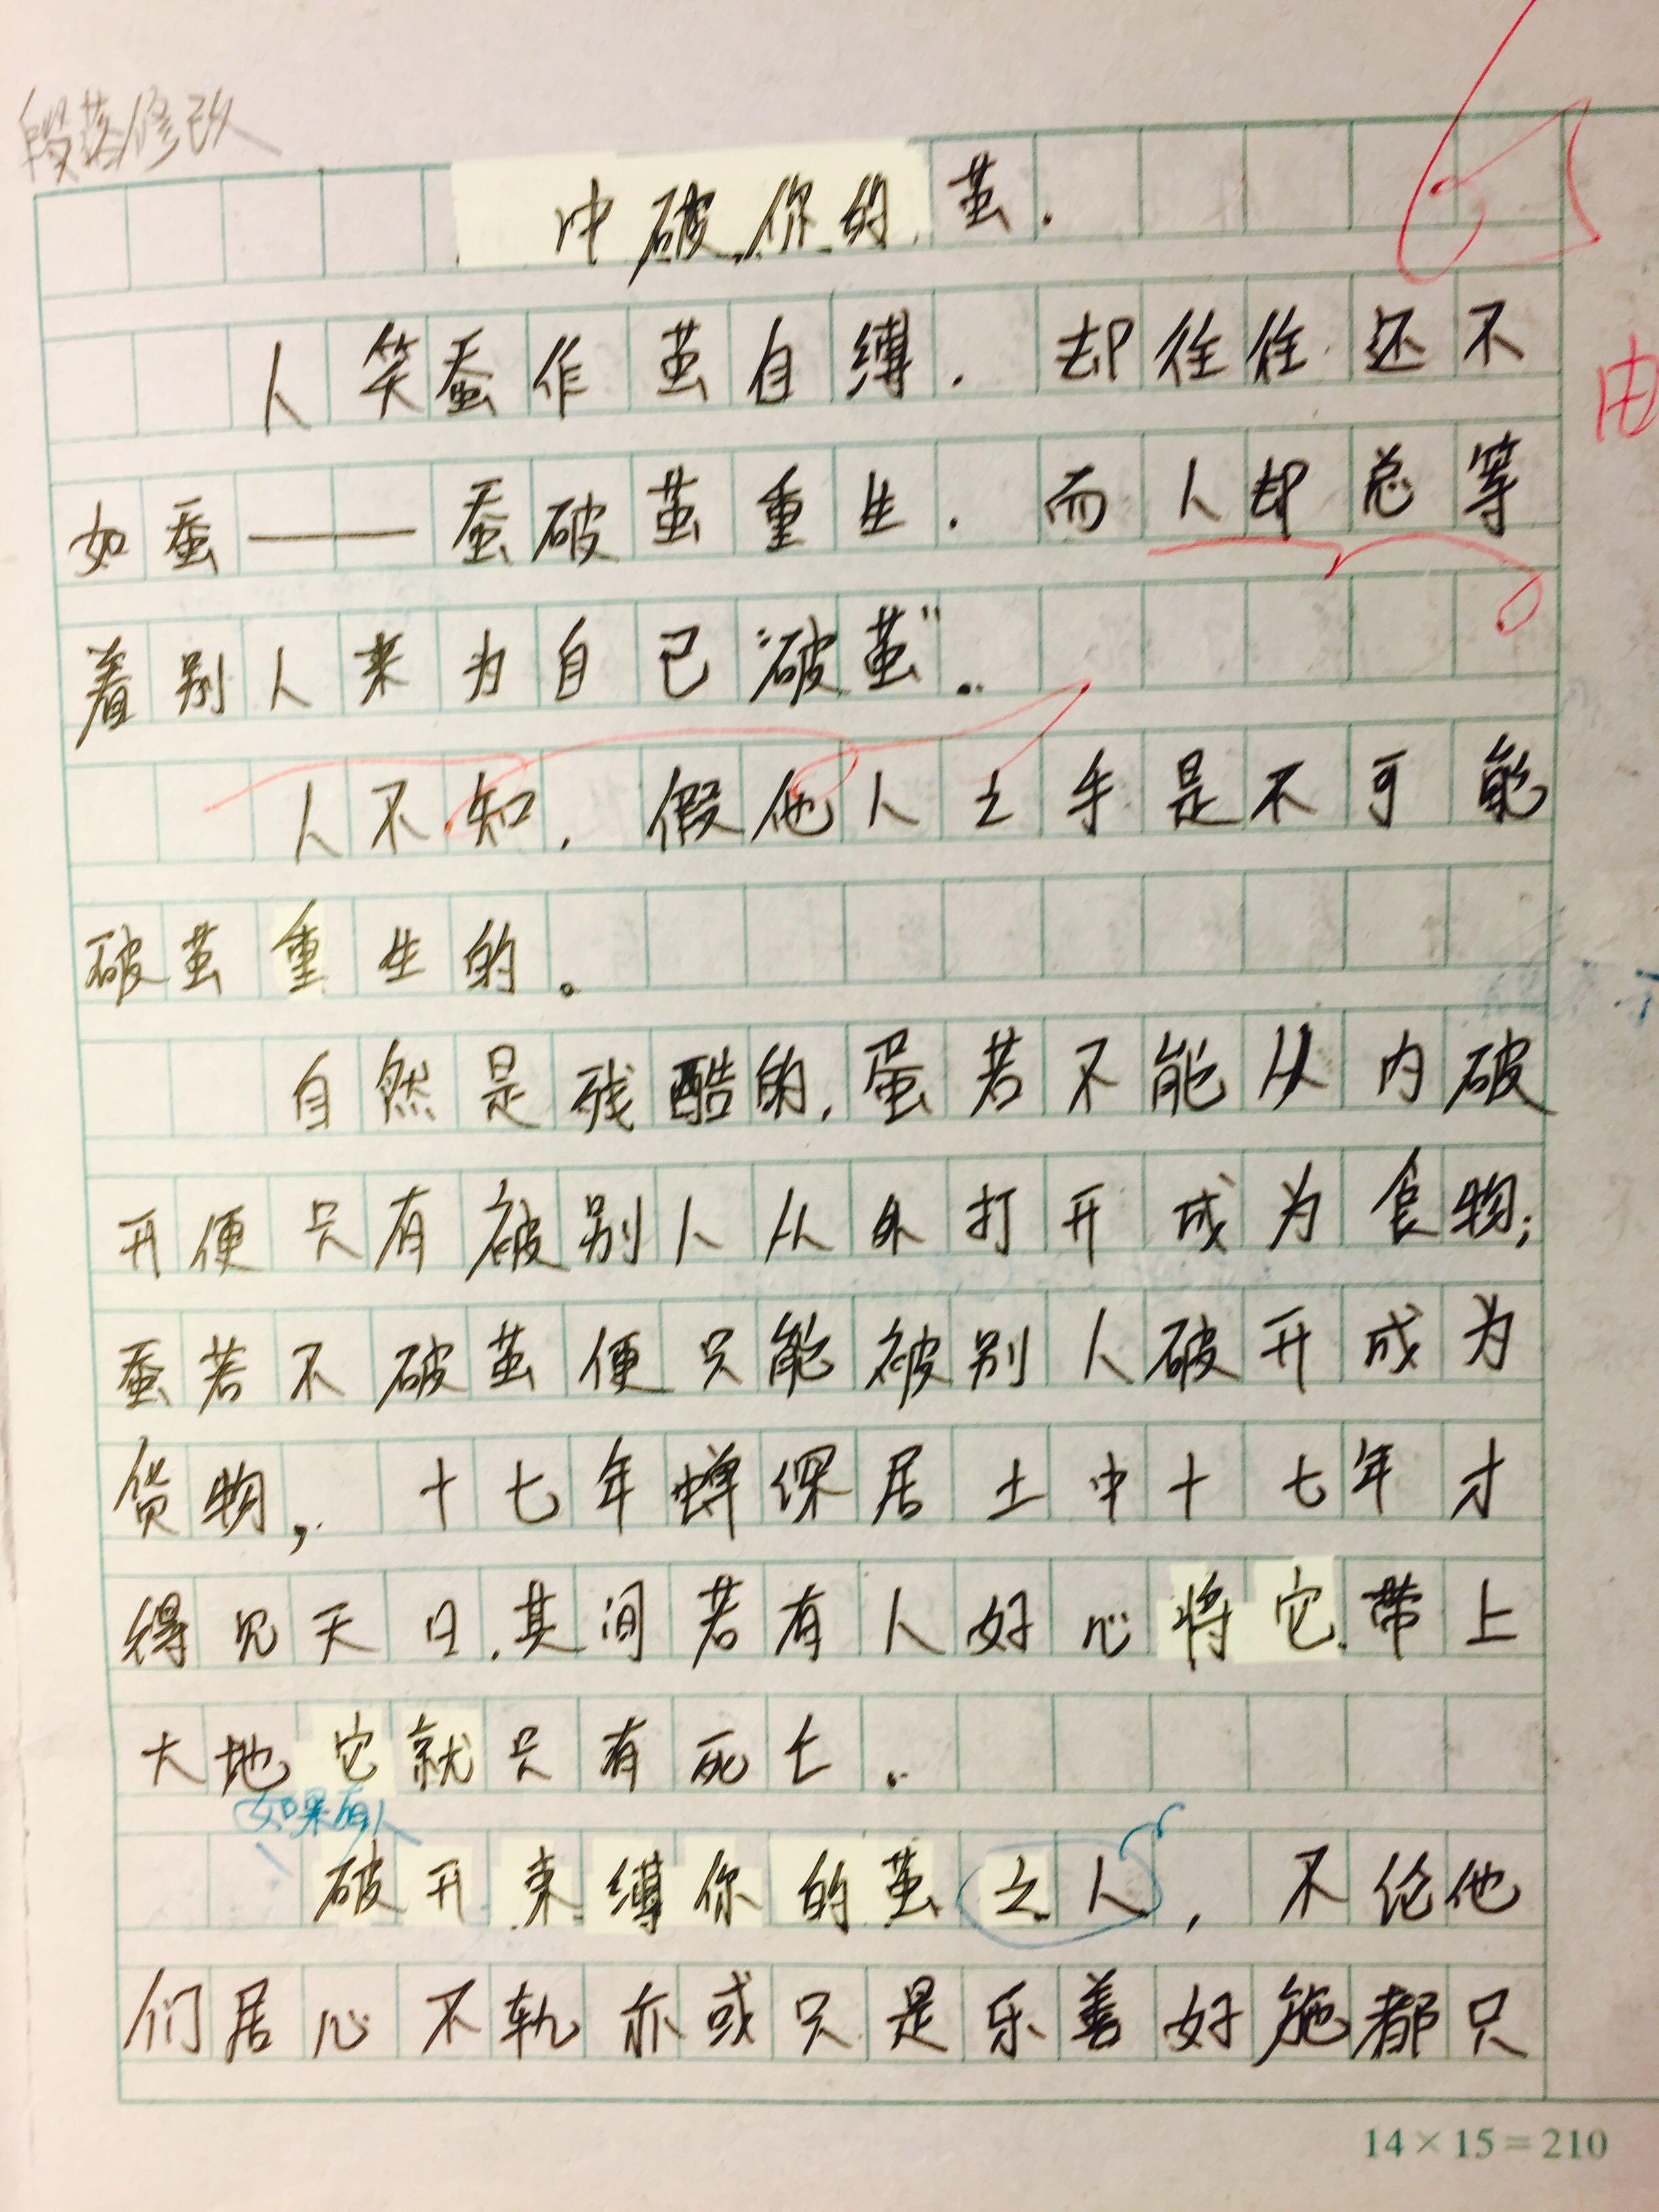 段落修改
冲破你的茧.
人笑蚕作茧自缚.却往往还不
如蚕——蚕破茧重生.而人却总等
着别人来为自己“破茧”.
人不知.假他人之手是不可能
破茧重生的。
自然是残酷的,蛋若不能从内破
开便只有被别人从外打开成为食物;
蚕若不破茧便只能被别人破开成为
货物,十七年蝉深居土中十七年才
得见天日.其间若有人好心将它带上
大地它就只有死亡.
如果有人
破开束缚你的茧之人,不论他
们居心不轨亦或只是乐善好施都只
14×15=210